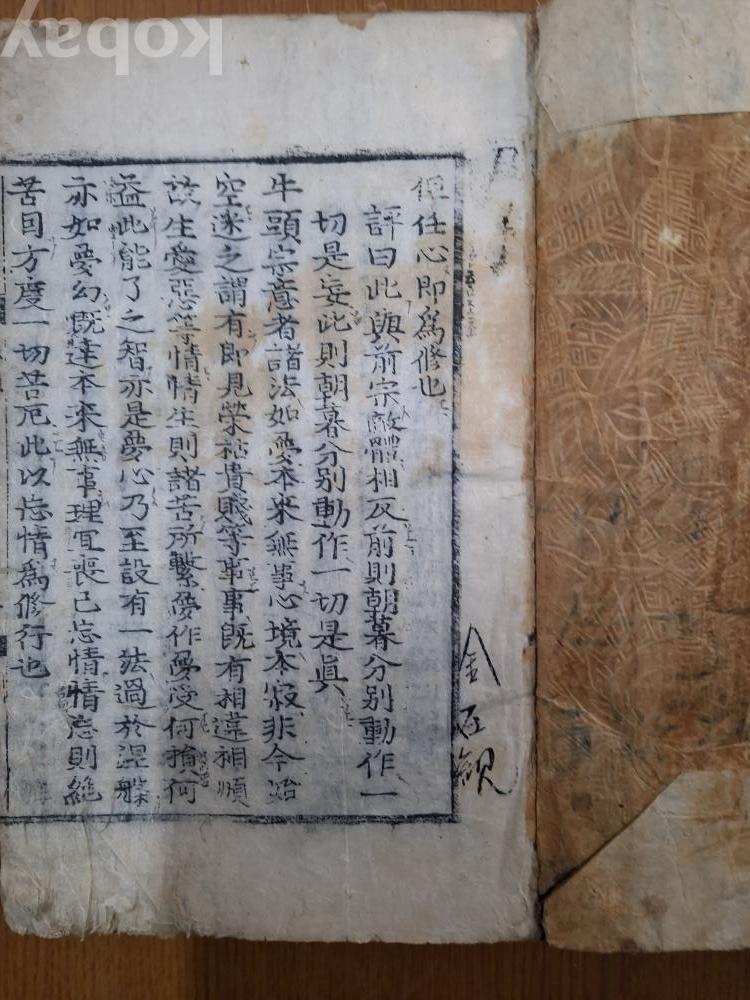 kobay
但任心即爲修也
評曰此與前宗敵體相反前則朝暮分別動作一
切是妄此則朝暮分別動作一切是眞
牛頭宗意者諸法如夢本來無事心境本寂非今始
空迷之謂有即見榮枯貴賤等事事旣有相違相順
故生愛惡等情情生則諸苦所繫夢作夢受何損何
益此能了之智亦是夢心乃至設有一法過於涅槃
亦如夢幻旣達本來無事理宜喪己忘情情忘則絶
苦因方度一切苦厄此以忘情爲修行也